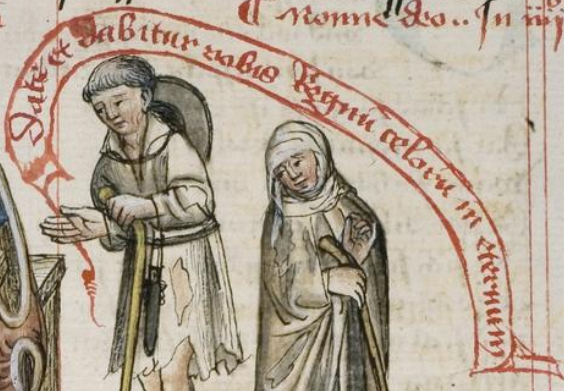 ¶ Nonne deo.. In iiij
Date et dabitur vobis Regnū celorū in eternum